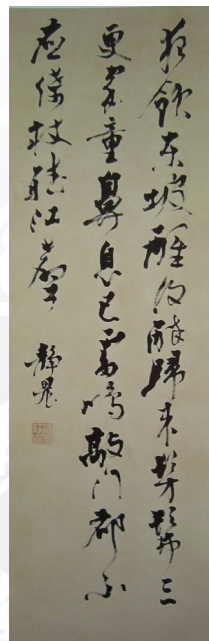 夜飲东坡醒復醉歸来髣髴三
更家童鼻息已雷鳴敲门都不
应倚杖聽江聲
靜晨